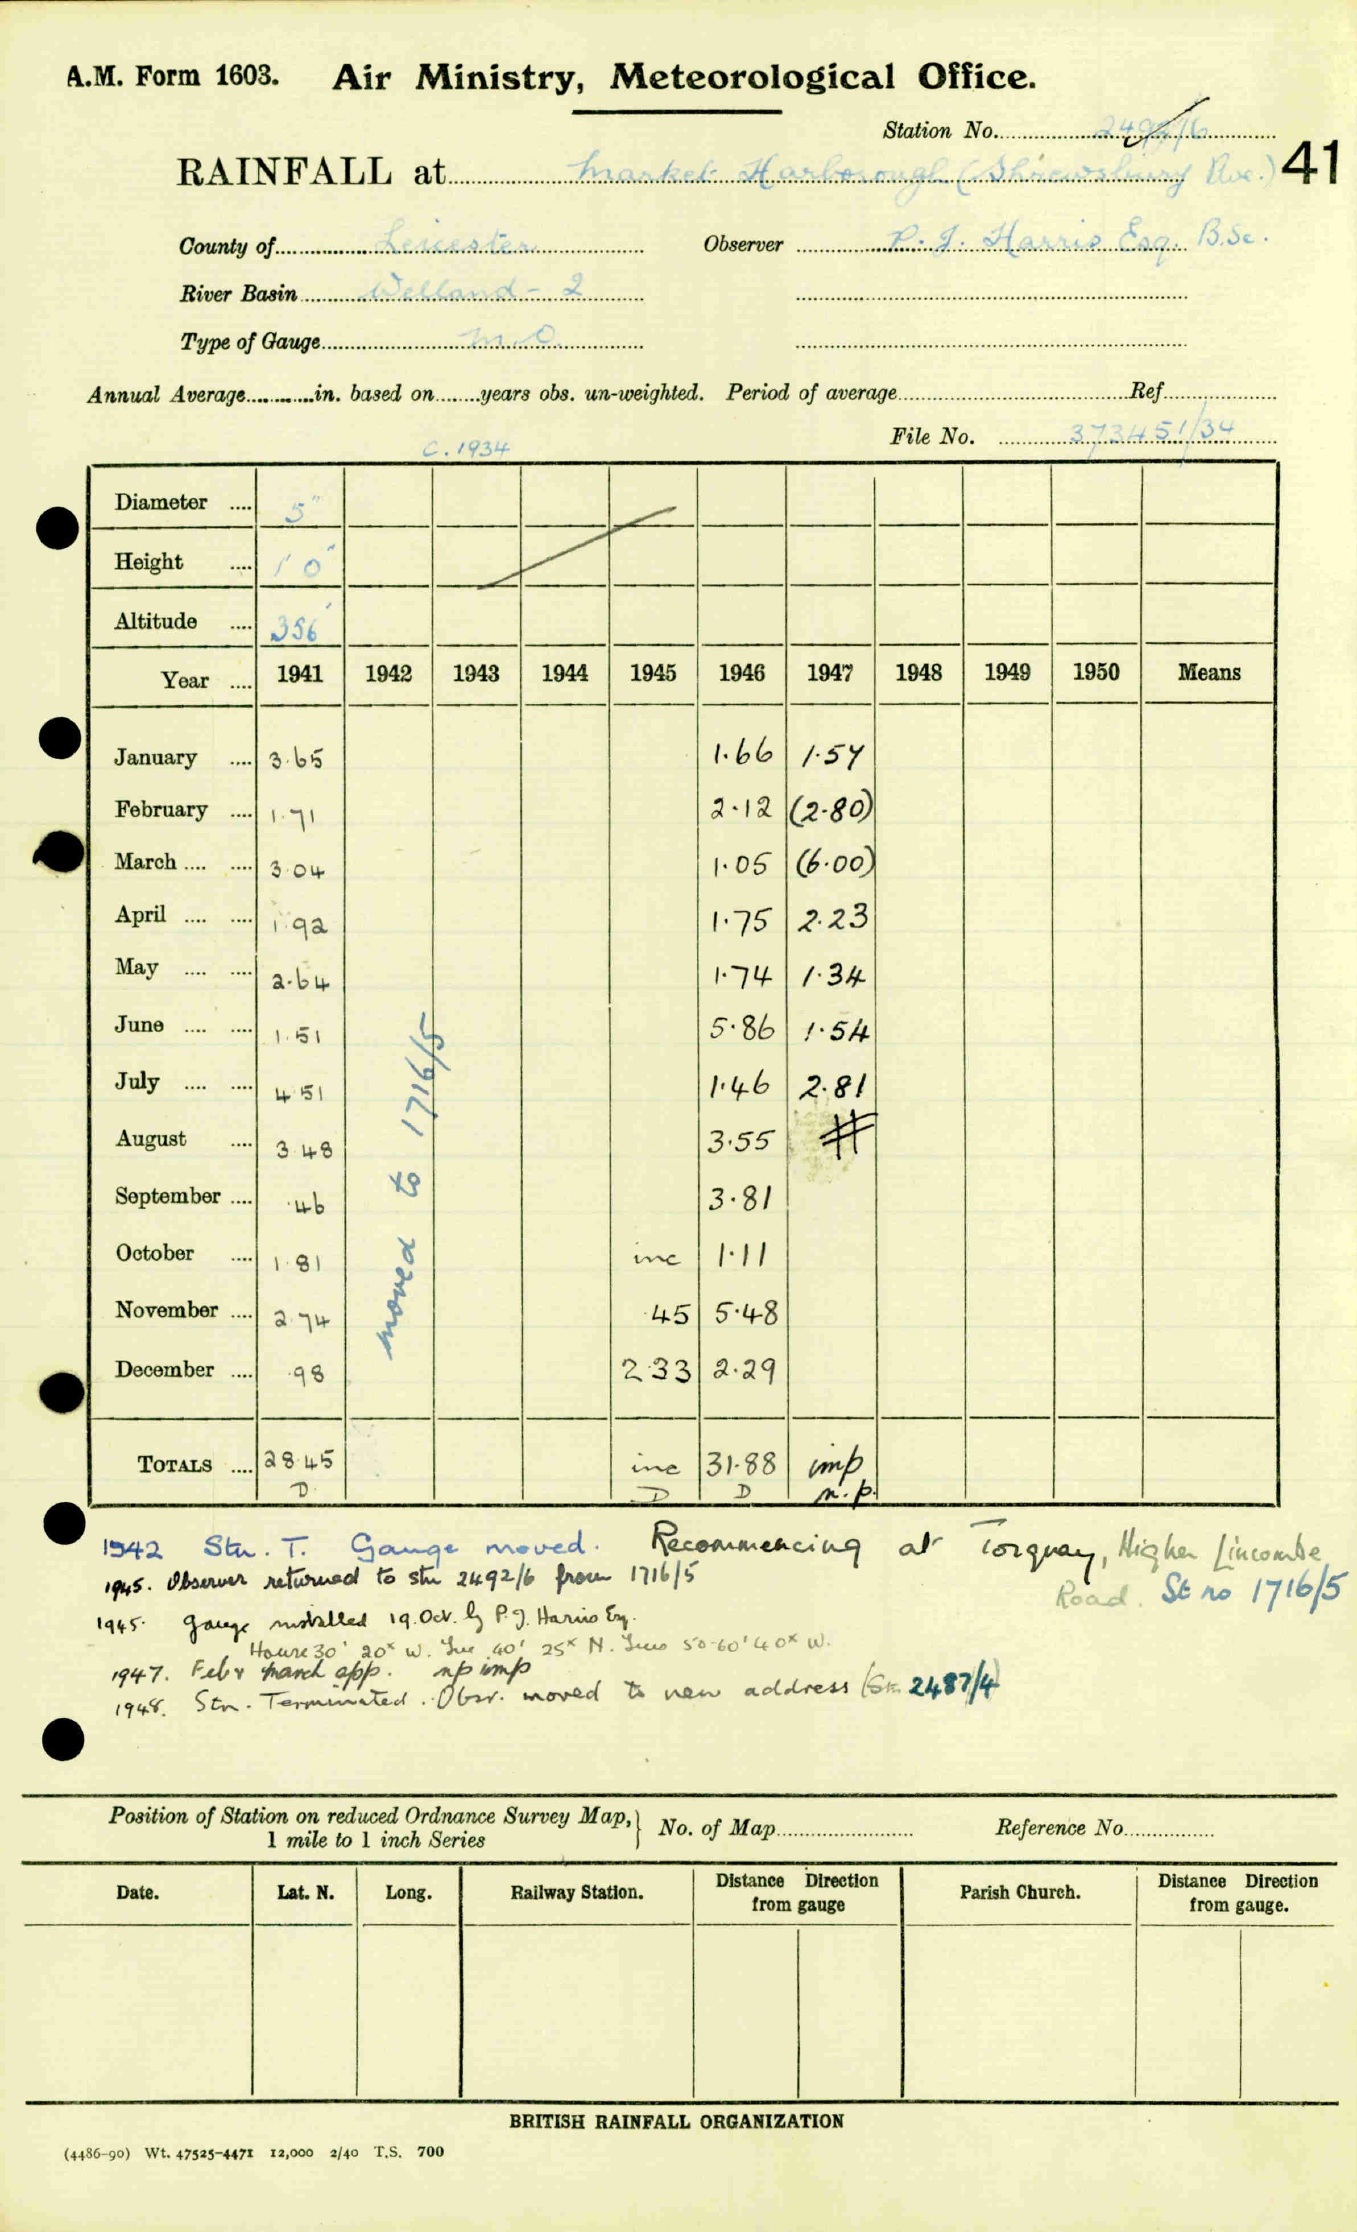 A.M. Form 1603. Air Ministry, Meteorological Office.
Station No. 2492/6
RAINFALL at Market Harborough (Shrewsbury Ave.) 41
County of Leicester Observer P. J. Harris Esq. B.Sc.
River Basin Welland - 2
Type of Gauge M.O.
Annual Average in. based on years obs. un-weighted. Period of average Ref
File No. 373451/34
C. 1934
Diameter 5"
Height 1' 0"
Altitude 356'
Year 1941 1942 1943 1944 1945 1946 1947 1948 1949 1950 Means
January 3.65 1.66 1.57
February 1.71 2.12 (2.80)
March 3.04 1.05 (6.00)
April 1.92 1.75 2.23
May 2.64 1.74 1.34
June 1.51 5.86 1.54
July 4.51 1.46 2.81
August 3.48 3.55 #
September .46 3.81
October 1.81 inc 1.11
November 2.74 .45 5.48
December .98 2.33 2.29
moved to 1716/5
TOTALS 28.45 inc 31.88 imp
D. D D n.p.
1942 Stn. T. Gauge moved. Recommencing at Torquay, Higher Lincombe
Road. St no 1716/5
1945. Observer returned to stn 2492/6 from 1716/5
1945. Gauge installed 19. Oct. by P. J. Harris Esq.
30' 20" W. 40' 25" N. 50 60' 40" W.
1947. Feb & March app. np imp
1948. Stn. Terminated. Obsr. moved to new address (Stn 2487/4)
Position of Station on reduced Ordnance Survey Map, 1 mile to 1 inch Series } No. of Map Reference No.
Date. Lat. N. Long. Railway Station. Distance from gauge Direction Parish Church. Distance from gauge. Direction
BRITISH RAINFALL ORGANIZATION
(4486-90) Wt. 47525-4471 12,000 2/40 T.S. 700